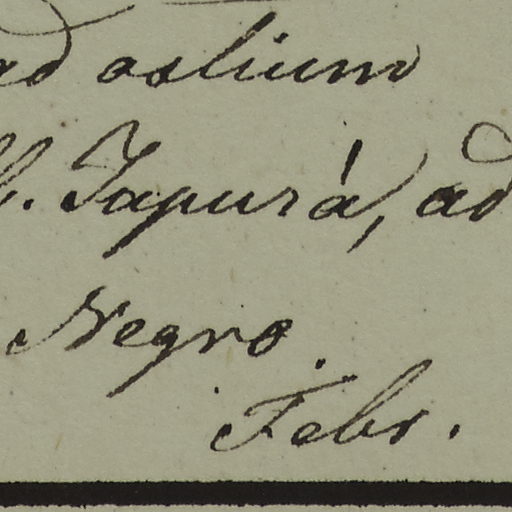 ad ostium
fl. Japurá, ad
Negro.
Febr.